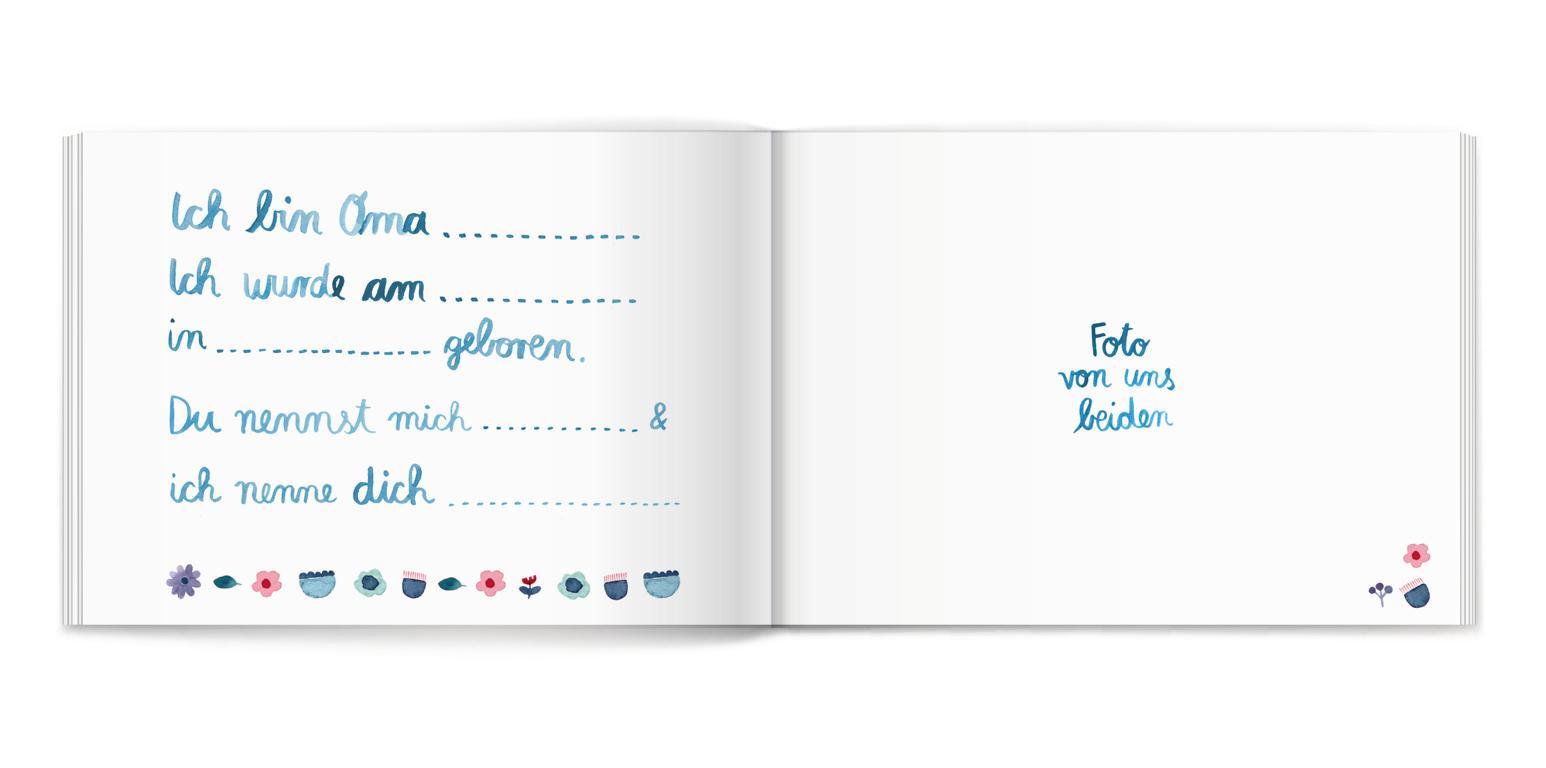 Ich bin Oma ..............
Ich wurde am ..............
in .................... geboren.
Du nennst mich .............. &
ich nenne dich ....................
Foto
von uns
beiden